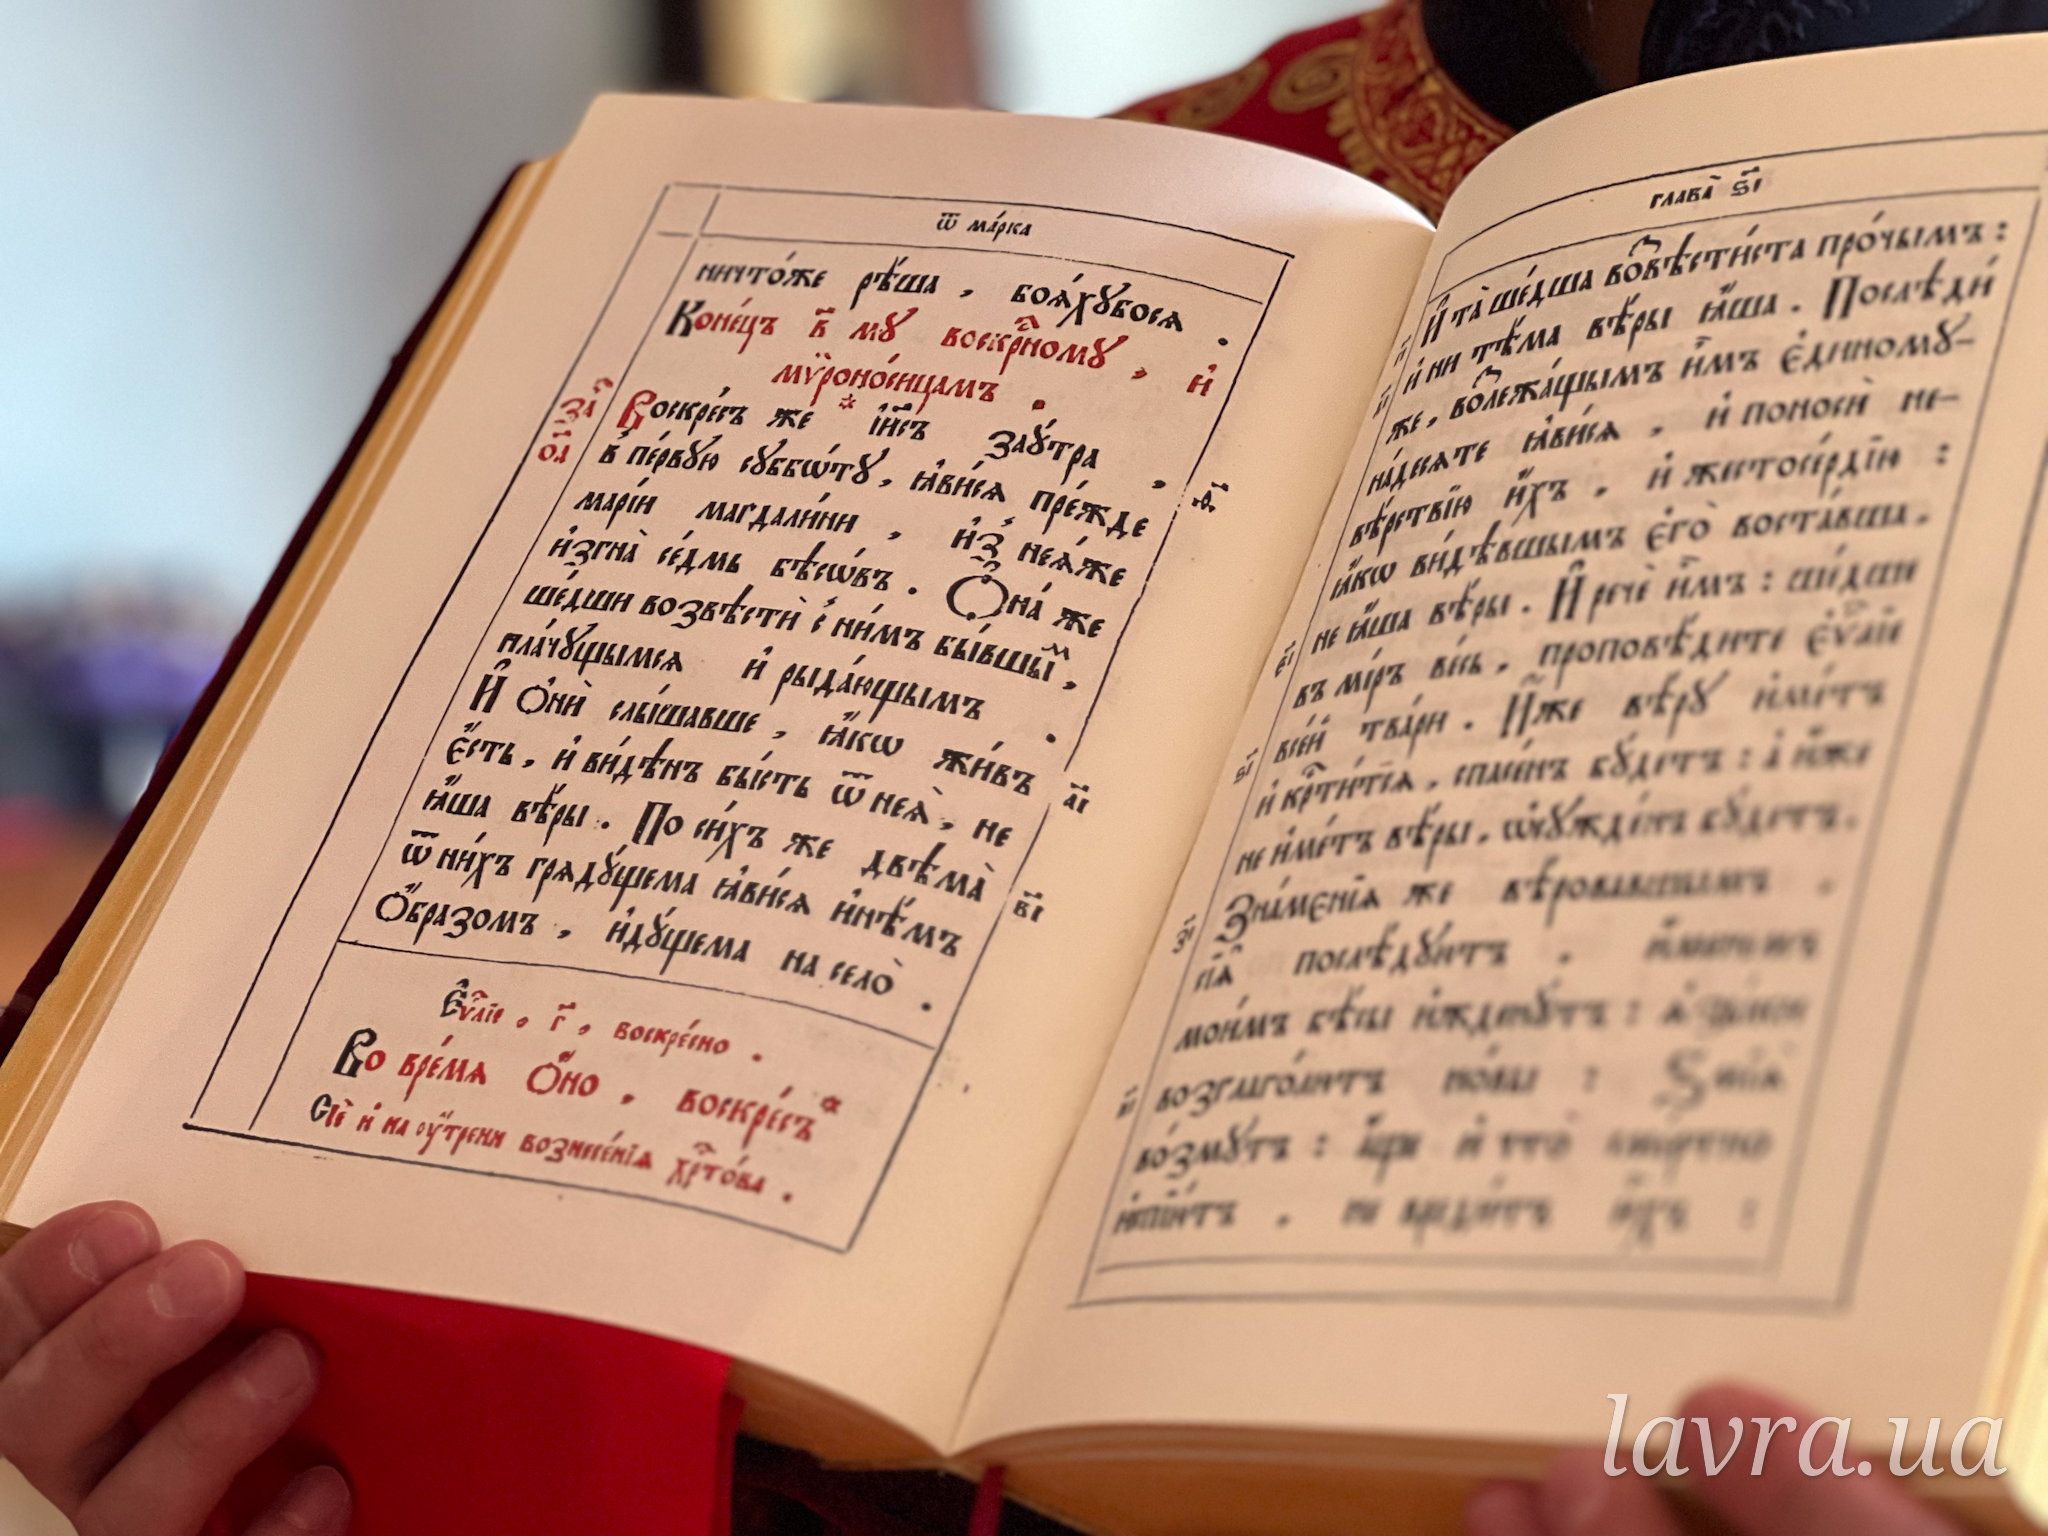 ѿ ма́рка
ничто́же рѣ́ша , боѧ́хꙋбосѧ .
Коне́цъ в҃ мꙋ воскрⷭ҇номꙋ , и҆
мѷроно́сицамъ .
заⷱ҇ ѻ҃а
Воскре́съ же * і҆и҃съ заꙋ́тра ,
в̾ пе́рвꙋю сꙋббѡ́тꙋ , ꙗ҆ви́сѧ пре́жде ѳ҃
марі́и магдали́ни , и҆з̾ неѧ́же
и҆згна̀ се́дмь бѣсѡ́въ . Ѻ҆на́ же
ше́дши возвѣстѝ с̾ ни́мъ бы́вшыⷨ ,
пла́чꙋщымсѧ и҆ рыда́ющымъ .
И҆ ѻ҆нѝ слы́шавше , ꙗ҆́кѡ жи́въ а҃і
є҆́сть , и҆ ви́дѣнъ бы́сть ѿ неѧ̀ , не
ꙗ҆́ша вѣ́ры . По си́хъ же двѣма̀ в҃і
ѿ ни́хъ грѧдꙋ́щема ꙗ҆ви́сѧ и҆нѣ́мъ
ѻ҆́бразомъ , и҆дꙋ́щема на село̀ .
Є҆ѵⷢ҇ліе , г҃ , воскре́сно .
Во вре́мѧ ѻ҆́но , воскре́съ *
Сіѐ и҆ на ᲂу҆́трени вознесе́нїѧ хрⷭ҇то́ва .
глава̀ ѕ҃і
И҆ та̀ ше́дша воⷥвѣсти́ста про́чымъ : г҃і
и҆ ни тѣ́ма вѣ́ры ꙗ҆́ша . Послѣди́ д҃і
же , воⷥлежа́щымъ и҆̀мъ є҆диномꙋ-
на́десѧте ꙗ҆ви́сѧ , и҆ поносѝ не-
вѣ́рствїю и҆́хъ , и҆ жестосе́рдїю :
ꙗ҆́кѡ ви́дѣвшымъ є҆го̀ воста́вша ,
не ꙗ҆́ша вѣ́ры . И҆ речѐ и҆̀мъ : ше́дши є҃і
въ мі́ръ ве́сь , проповѣ́дите є҆ѵⷢ҇ліе
все́й тва́ри . И҆́же вѣ́рꙋ и҆́метъ ѕ҃і
и҆ крⷭ҇ти́тсѧ , спасе́нъ бꙋ́детъ : а҆ и҆́же
не и҆́метъ вѣ́ры , ѡ҆сꙋжде́нъ бꙋ́детъ .
Зна́менїѧ же вѣ́ровавшымъ , з҃і
сїѧ̀ послѣ́дꙋютъ . и҆́менемъ
мои́мъ бѣ́сы и҆жденꙋ́тъ : ѧ҆зы́ки
возглаго́лютъ но́вы : Ѕмїѧ̀ и҃і
во́змꙋтъ : а҆́ще и҆ что̀ сме́ртно
и҆спїю́тъ , не вреди́тъ и҆́хъ :
lavra.ua